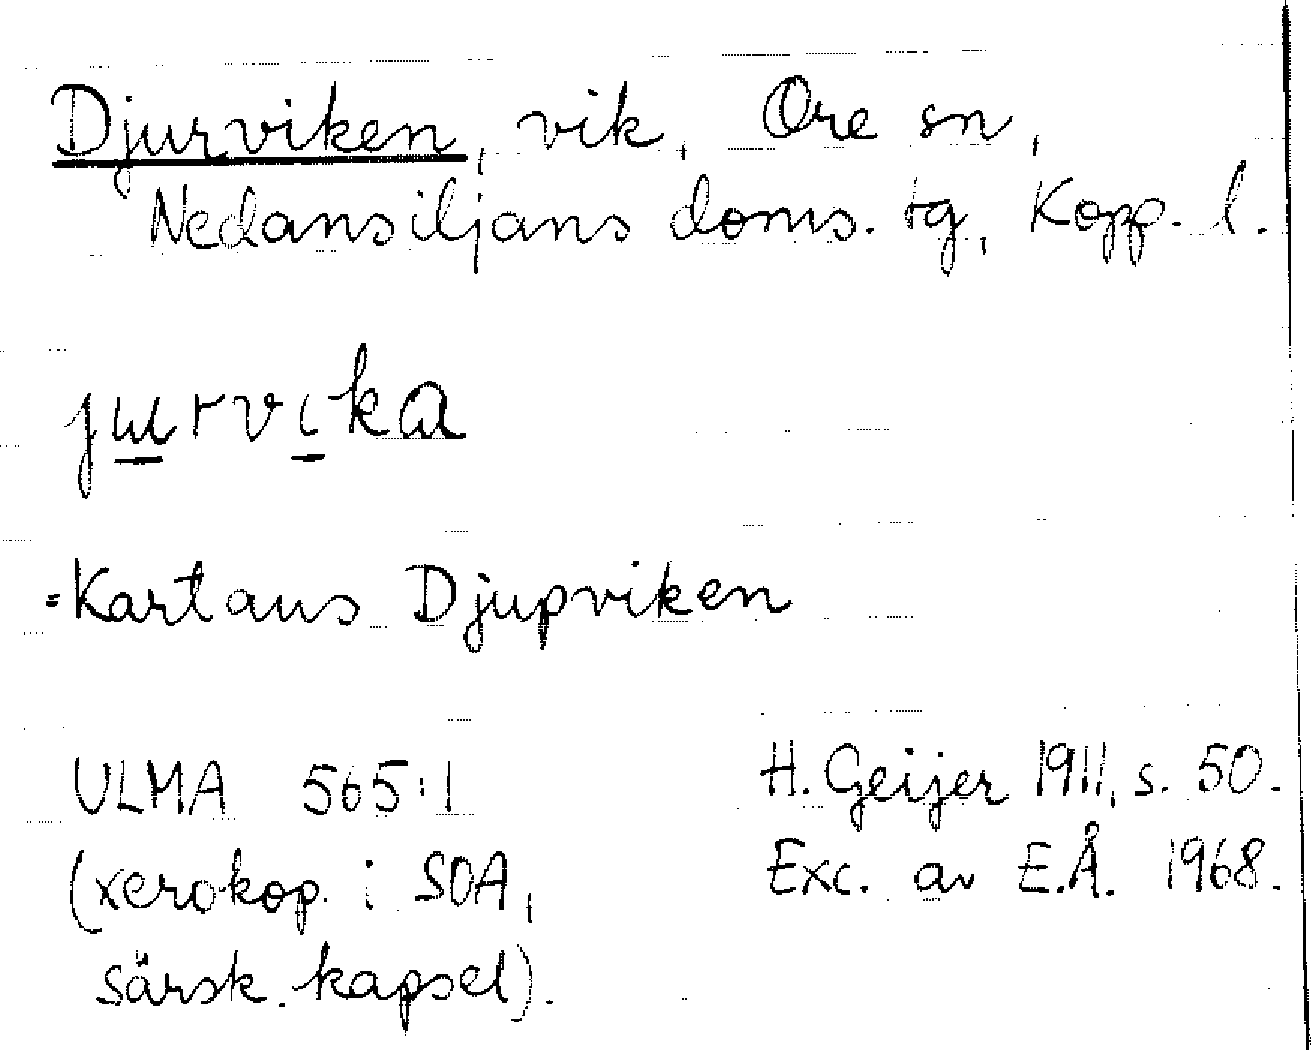 Djurviken, vik, Ore sn,
Nedansiljans doms. tg, Kopp. l.
jɯrvika
= Kartans Djupviken
ULMA 565:1
H. Geijer 1911, s. 50.
(xerokop. i SOA,
Exc. av E.Å. 1968.
särsk. kapsel).